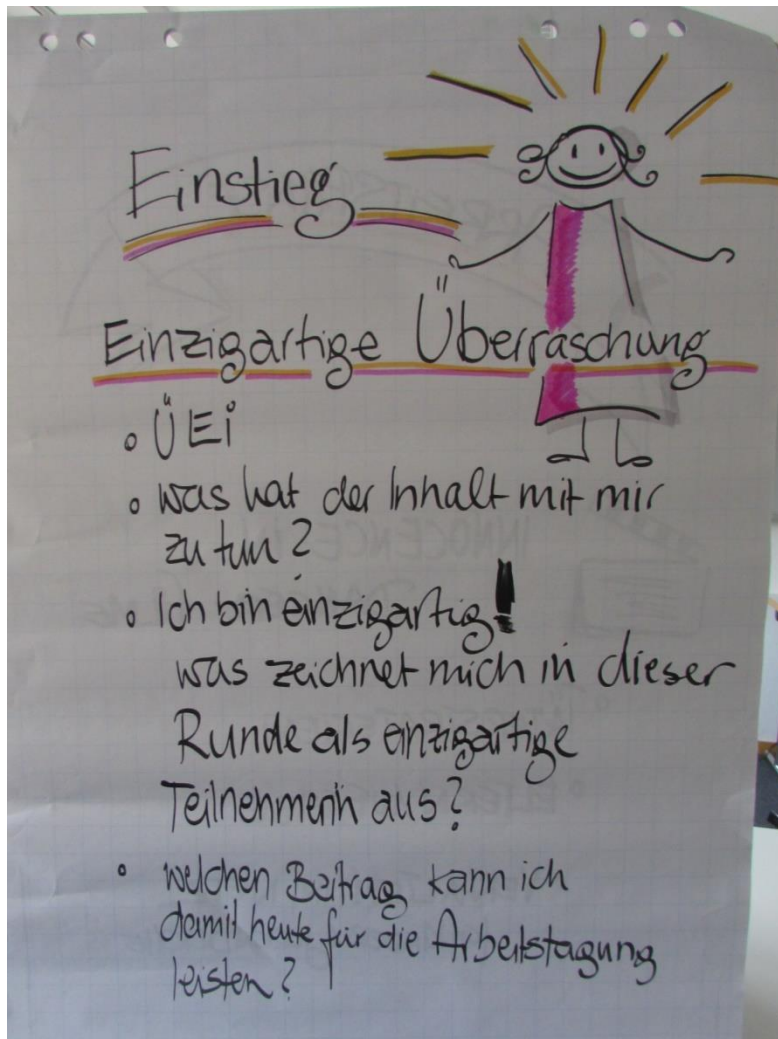 Einstieg
Einzigartige Überraschung
• ÜEi
• was hat der Inhalt mit mir
zu tun?
• Ich bin einzigartig!
was zeichnet mich in dieser
Runde als einzigartige
Teilnehmerin aus?
• welchen Beitrag kann ich
damit heute für die Arbeitstagung
leisten?